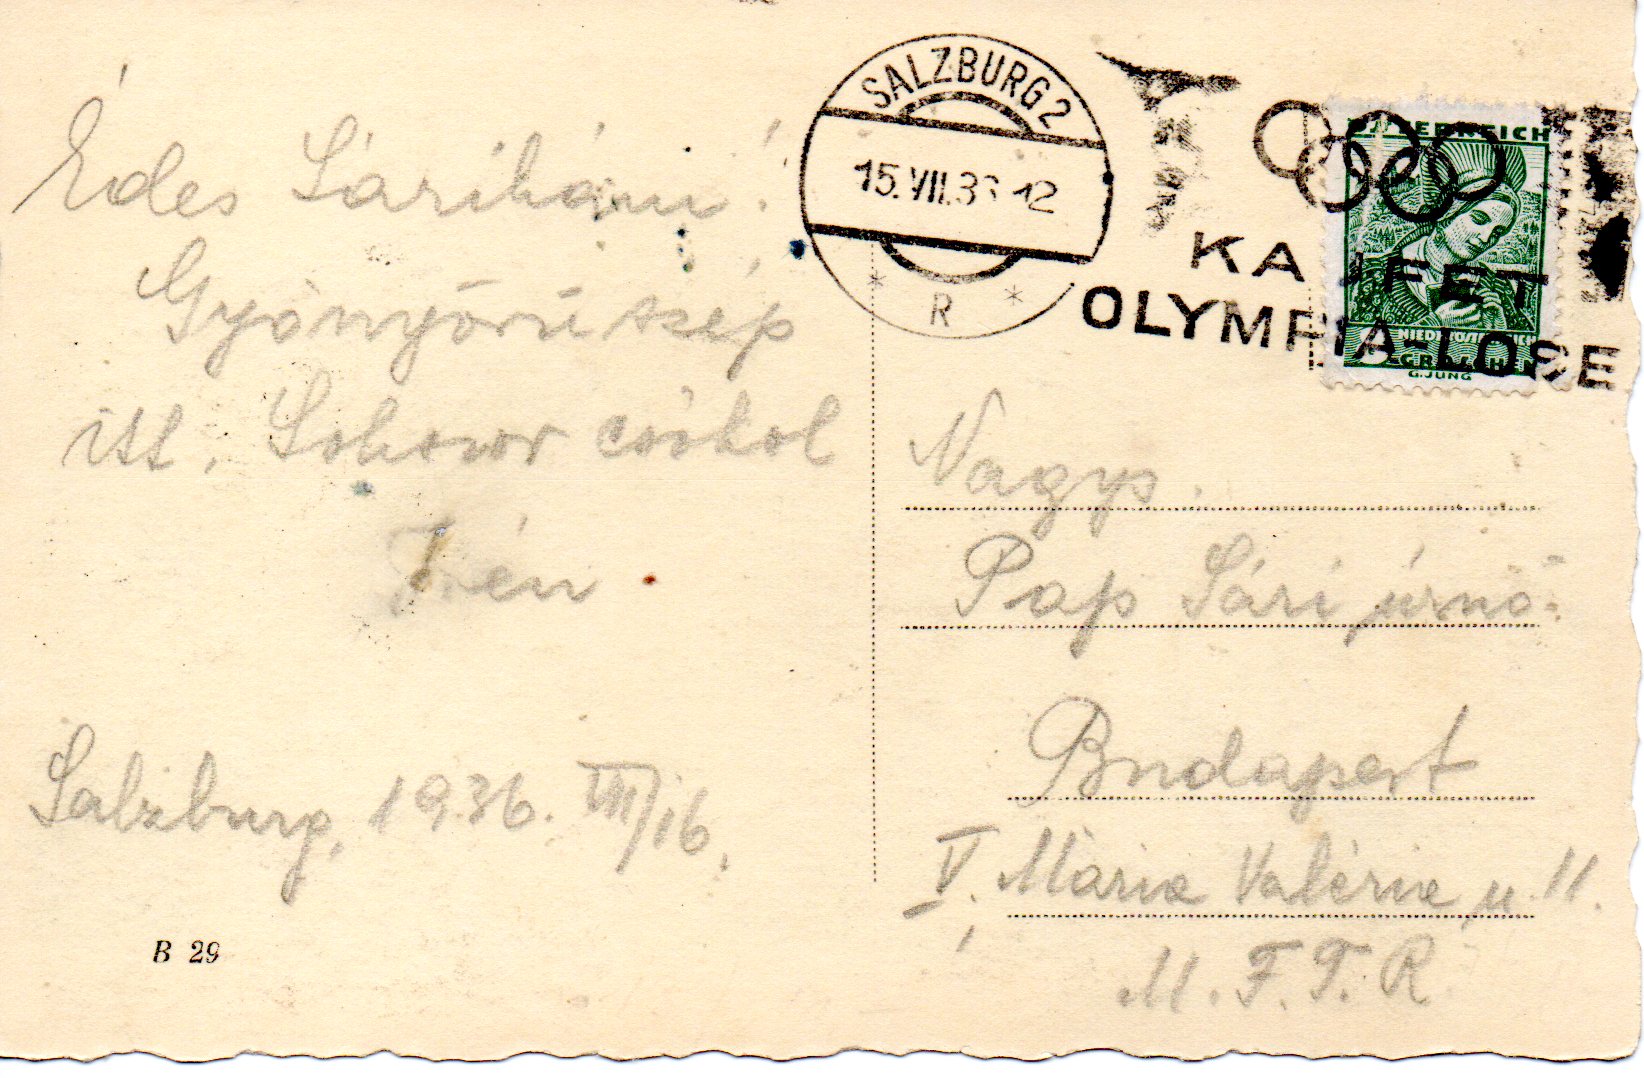 Édes Sárikám!
Gyönyörű szép
itt. Sokszor csókol
Irén
Salzburg, 1936. VII/16.
B 29
SALZBURG 2
15.VII.36 12
* R *
ÖSTERREICH
KAUFET
OLYMPIA-LOSE
NIEDERÖSTERREICH
GROSCHEN
G.JUNG
Nagys.
Pap Sári úrnő.
Budapest
V. Mária Valéria u 11.
M. F. T. R